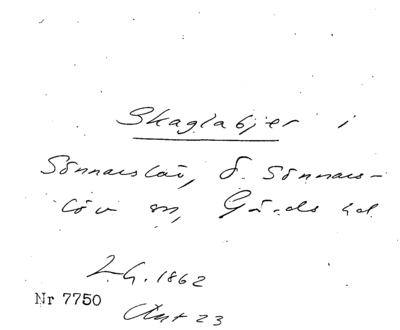 Skaglabjer i
Sönnarslöv, Ö. Sönnars-
löv sn, Gärds hd
L.G. 1862
Nr 7750
Akt 23